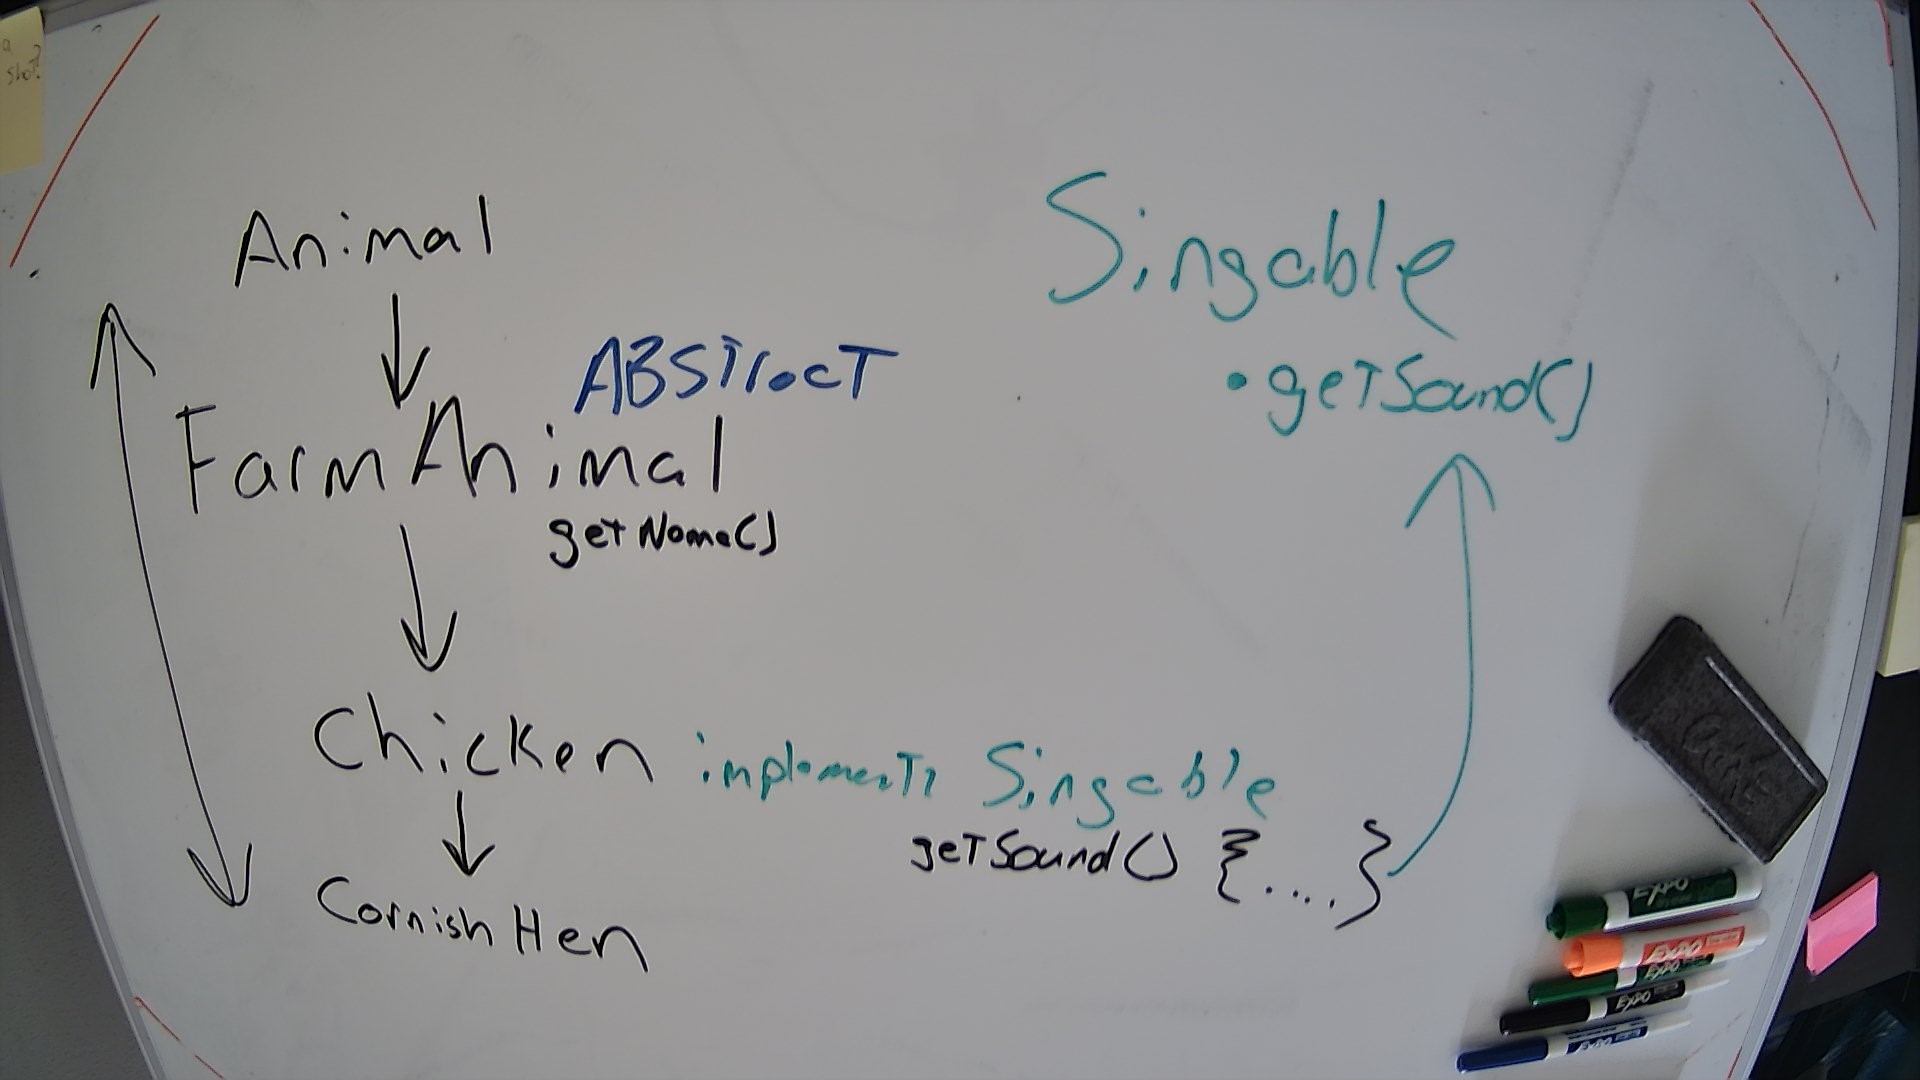 a
shot?
Animal
ABSTracT
FarmAnimal
getName()
Chicken implements Singable
getSound() {....}
CornishHen
Singable
• getSound()
EXPO
EXPO
EXPO
EXPO
EXPO